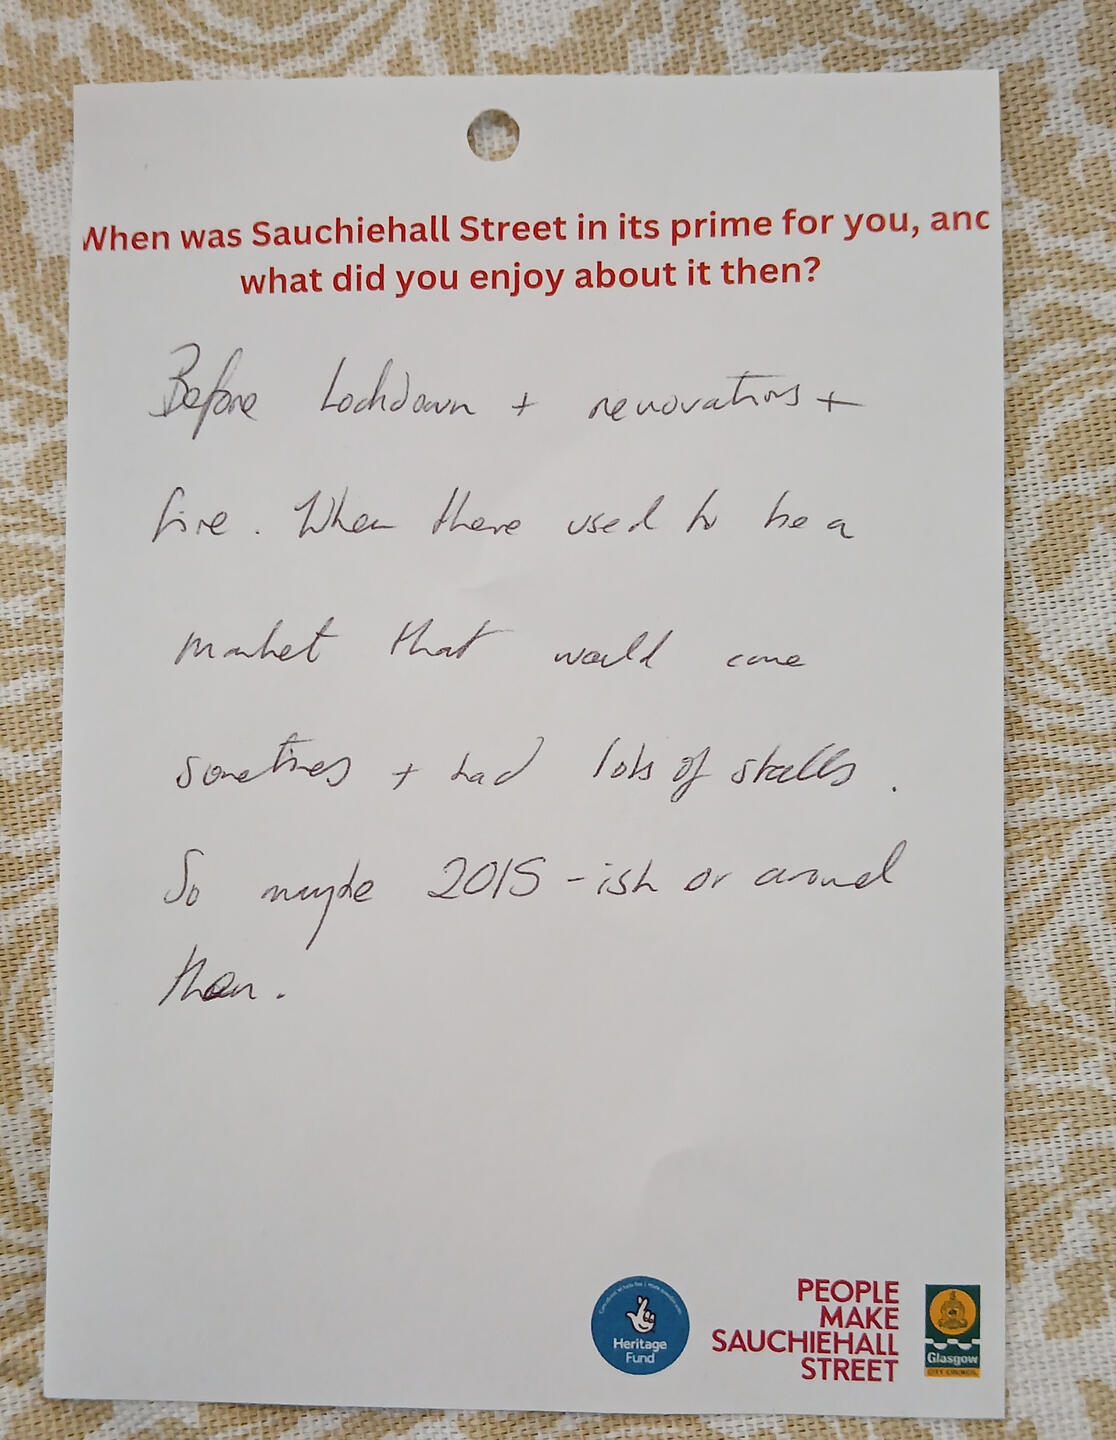 When was Sauchiehall Street in its prime for you, and
what did you enjoy about it then?
Before Lockdown + renovations +
fire. When there used to be a
market that would come
sometimes + had lots of stalls.
So maybe 2015-ish or around
then.
Heritage
Fund
PEOPLE
MAKE
SAUCHIEHALL
STREET
Glasgow
CITY COUNCIL